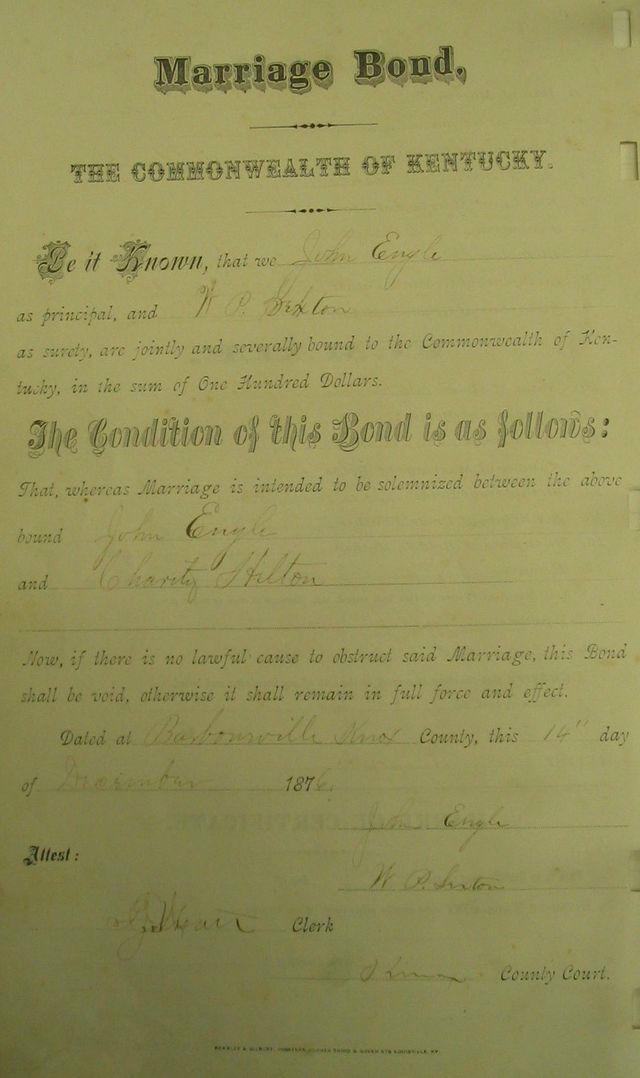 Marriage Bond.
THE COMMONWEALTH OF KENTUCKY.
Be it Known, that we John Engle
as principal, and W. P. Sexton
as surety, are jointly and severally bound to the Commonwealth of Ken-
tucky, in the sum of One Hundred Dollars.
The Condition of this Bond is as follows:
That, whereas Marriage is intended to be solemnized between the above
bound John Engle
and Charity Hilton
Now, if there is no lawful cause to obstruct said Marriage, this Bond
shall be void, otherwise it shall remain in full force and effect.
Dated at Barbourville Knox County, this 14" day
of December 1876.
John Engle
Attest:
W. P. Sexton
Clerk
Knox County Court.